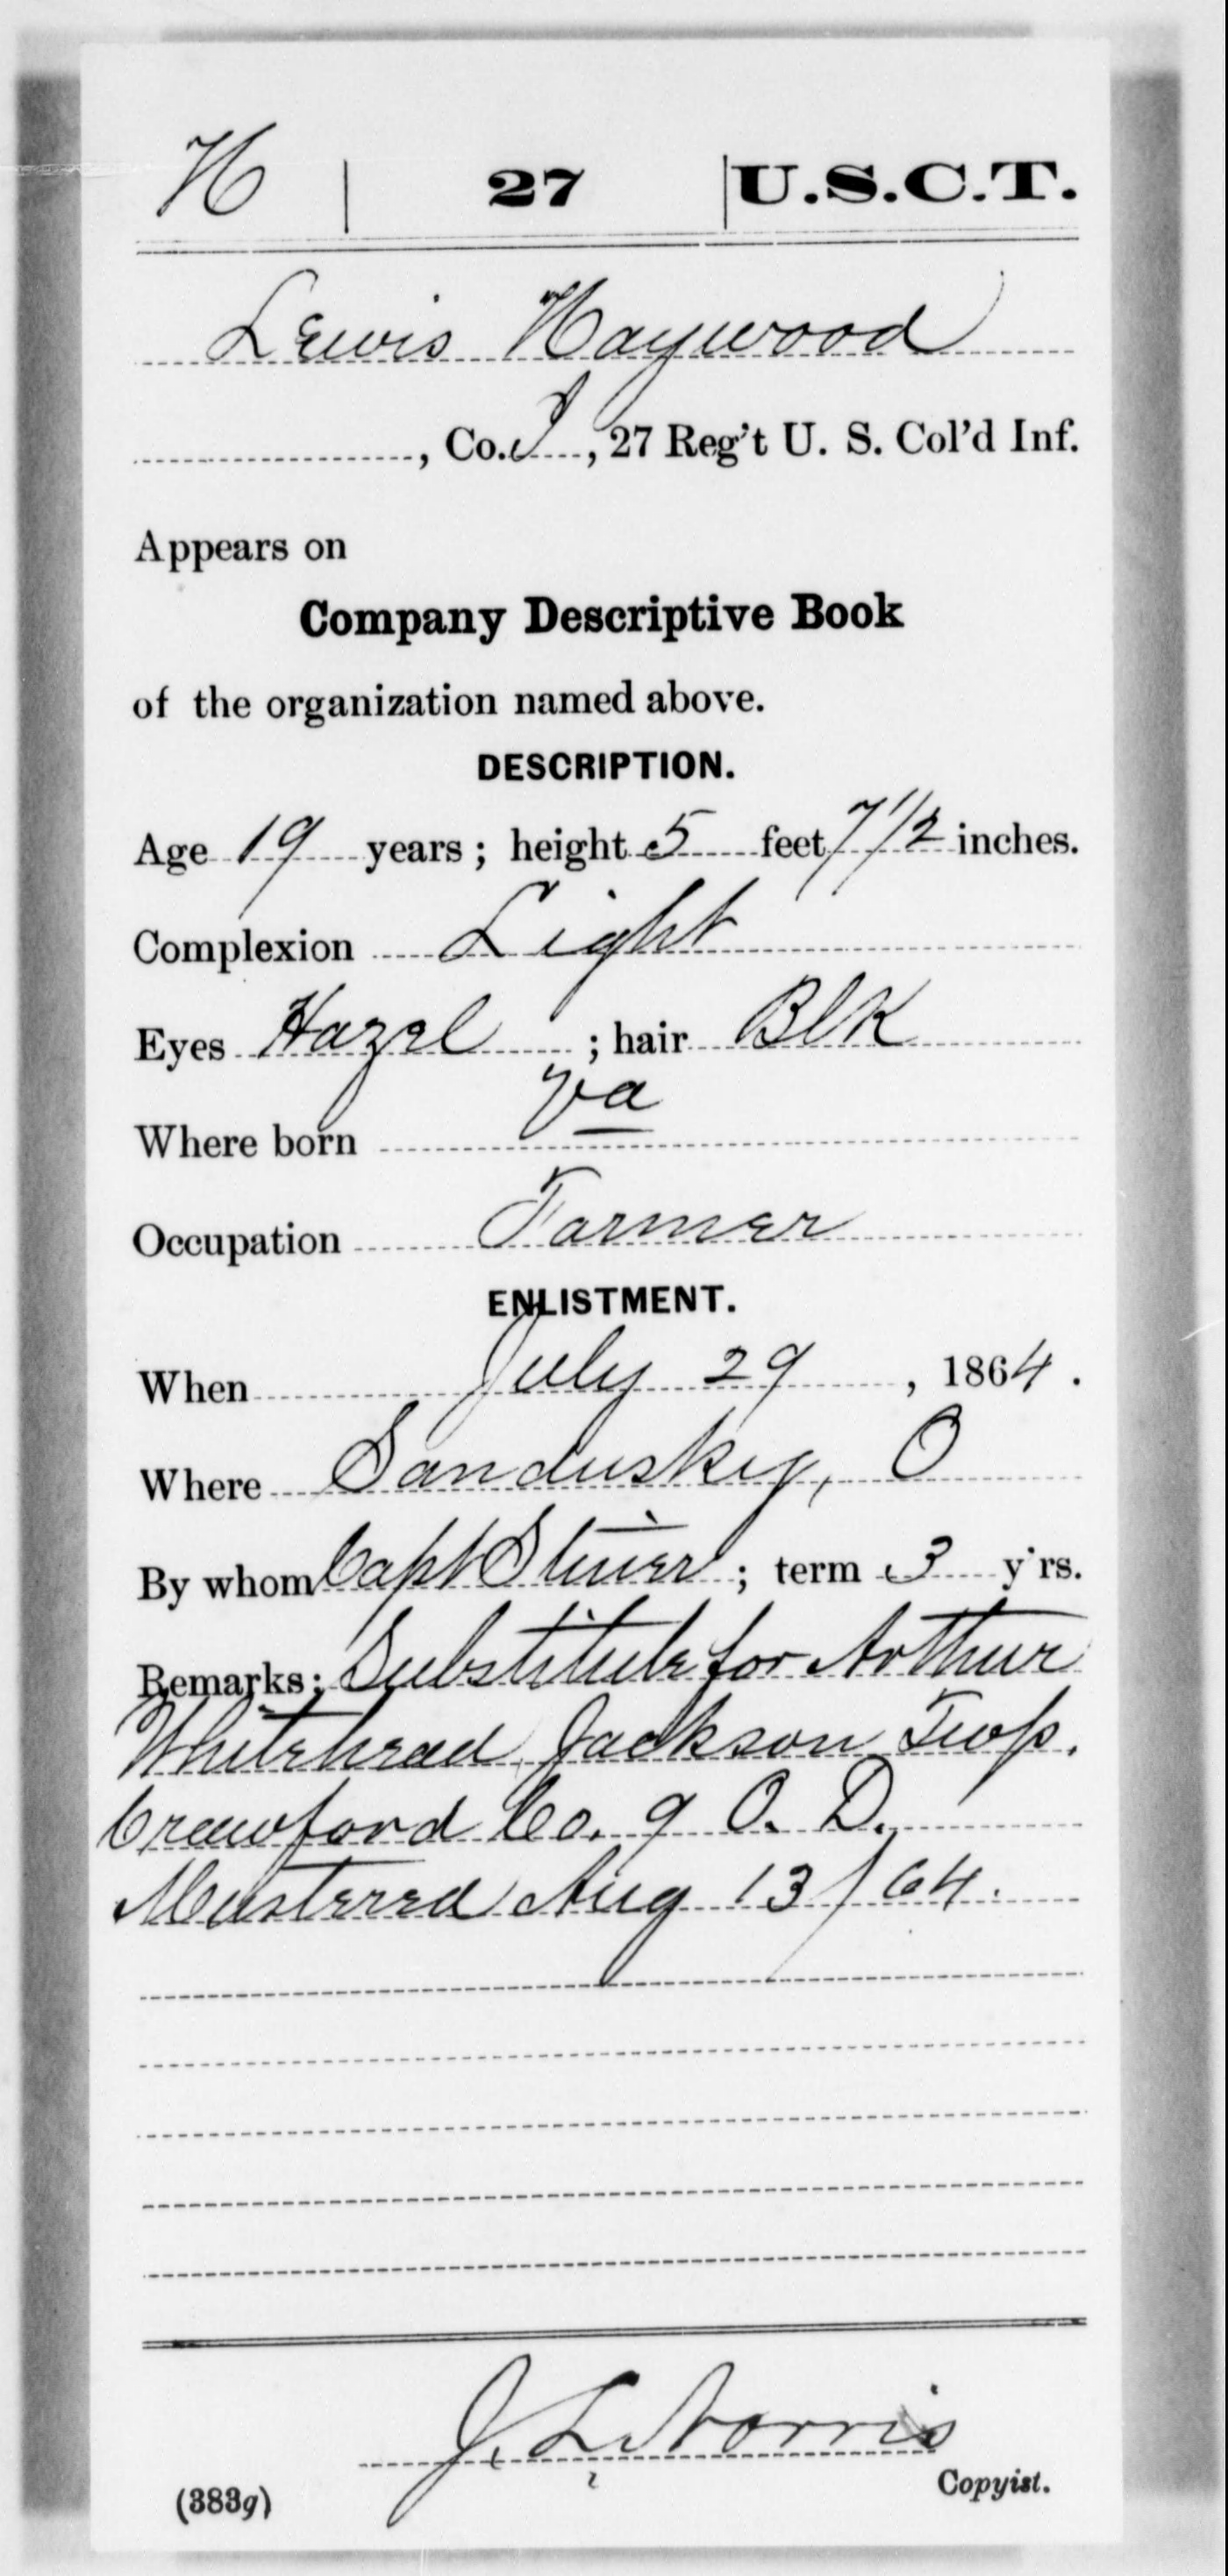 H | 27 | U.S.C.T.
Lewis Haywood
, Co. I, 27 Reg't U. S. Col'd Inf.
Appears on
Company Descriptive Book
of the organization named above.
DESCRIPTION.
Age 19 years; height 5 feet 7 1/2 inches.
Complexion Light
Eyes Hazel; hair Blk
Where born Va
Occupation Farmer
ENLISTMENT.
When July 29, 1864.
Where Sandusky, O
By whom Capt; term 3 y'rs.
Remarks: Substitute for Arthur
Whitehead Jackson Twp.
Crawford Co. 9 O. D.
Mustered Aug 13/64.
J. L. Norris
(383g) Copyist.